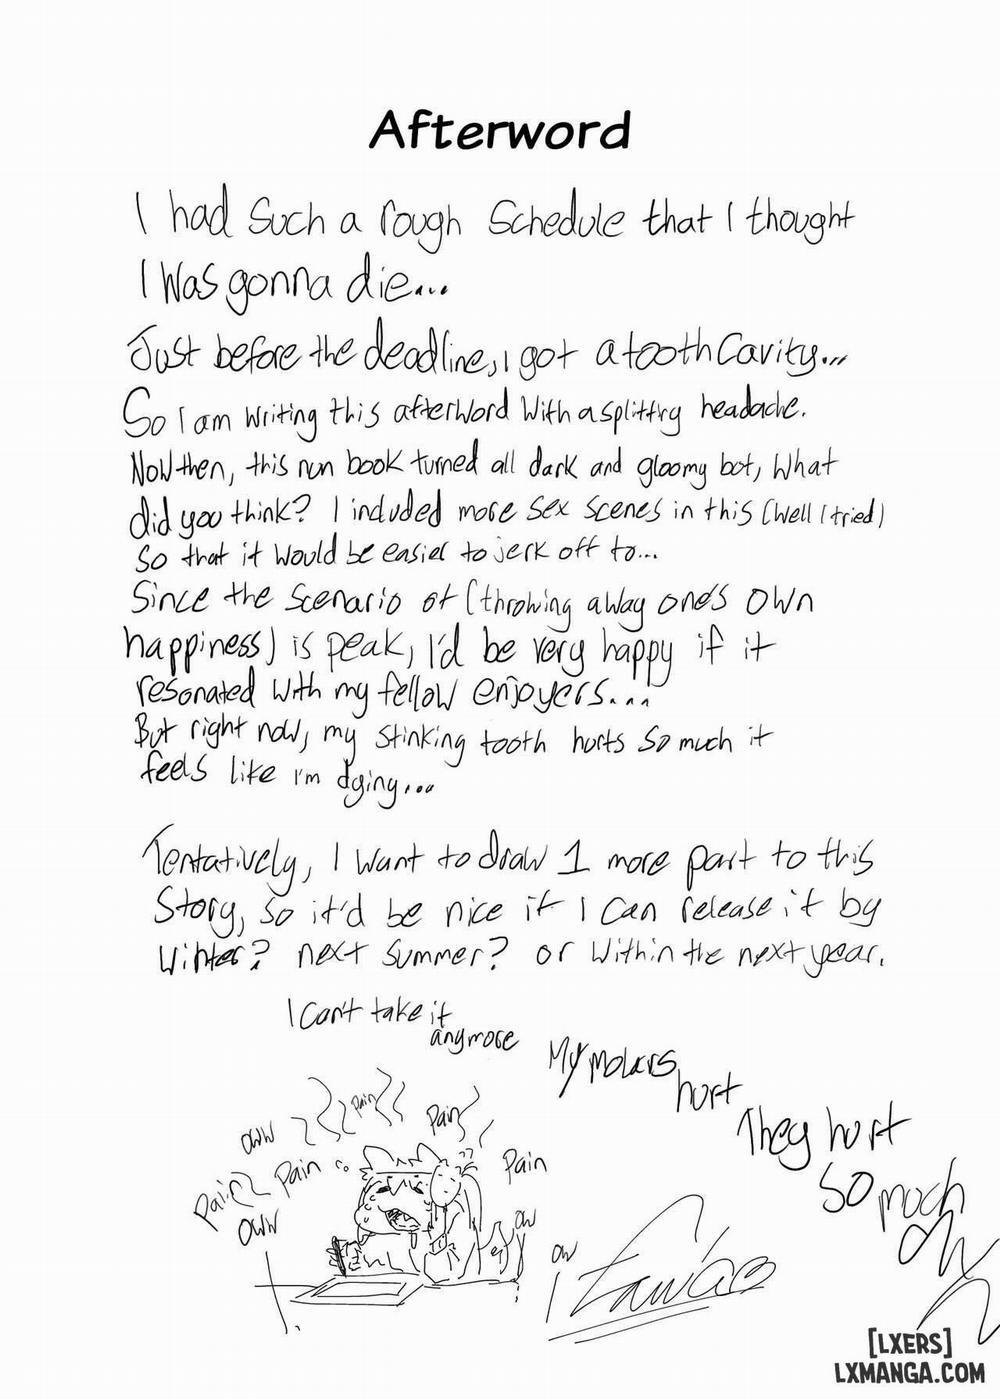 Afterword
I had Such a rough Schedule that I thought
I Was gonna die...
Just before the deadline, I got a tooth Cavity...
So I am writing this afterword with a splitting headache.
Now then, this nun book turned all dark and gloomy bot, What
did you think? I included more sex scenes in this (Well I tried)
so that it would be easier to jerk off to...
Since the scenario of (throwing away one's own
happiness) is peak, I'd be very happy if it
resonated with my fellow enjoyers...
But right now, my stinking tooth hurts so much it
feels like I'm dying...
Tentatively, I want to draw 1 more part to this
Story, so it'd be nice if I can release it by
winter? next summer? or within the next year.
I can't take it
anymore
My molars
hurt
They hurt
so much
ow
Pain
Pain
Pain
Pain
Pain
oww
oww
ow
ow
[LXERS]
LXMANGA.COM